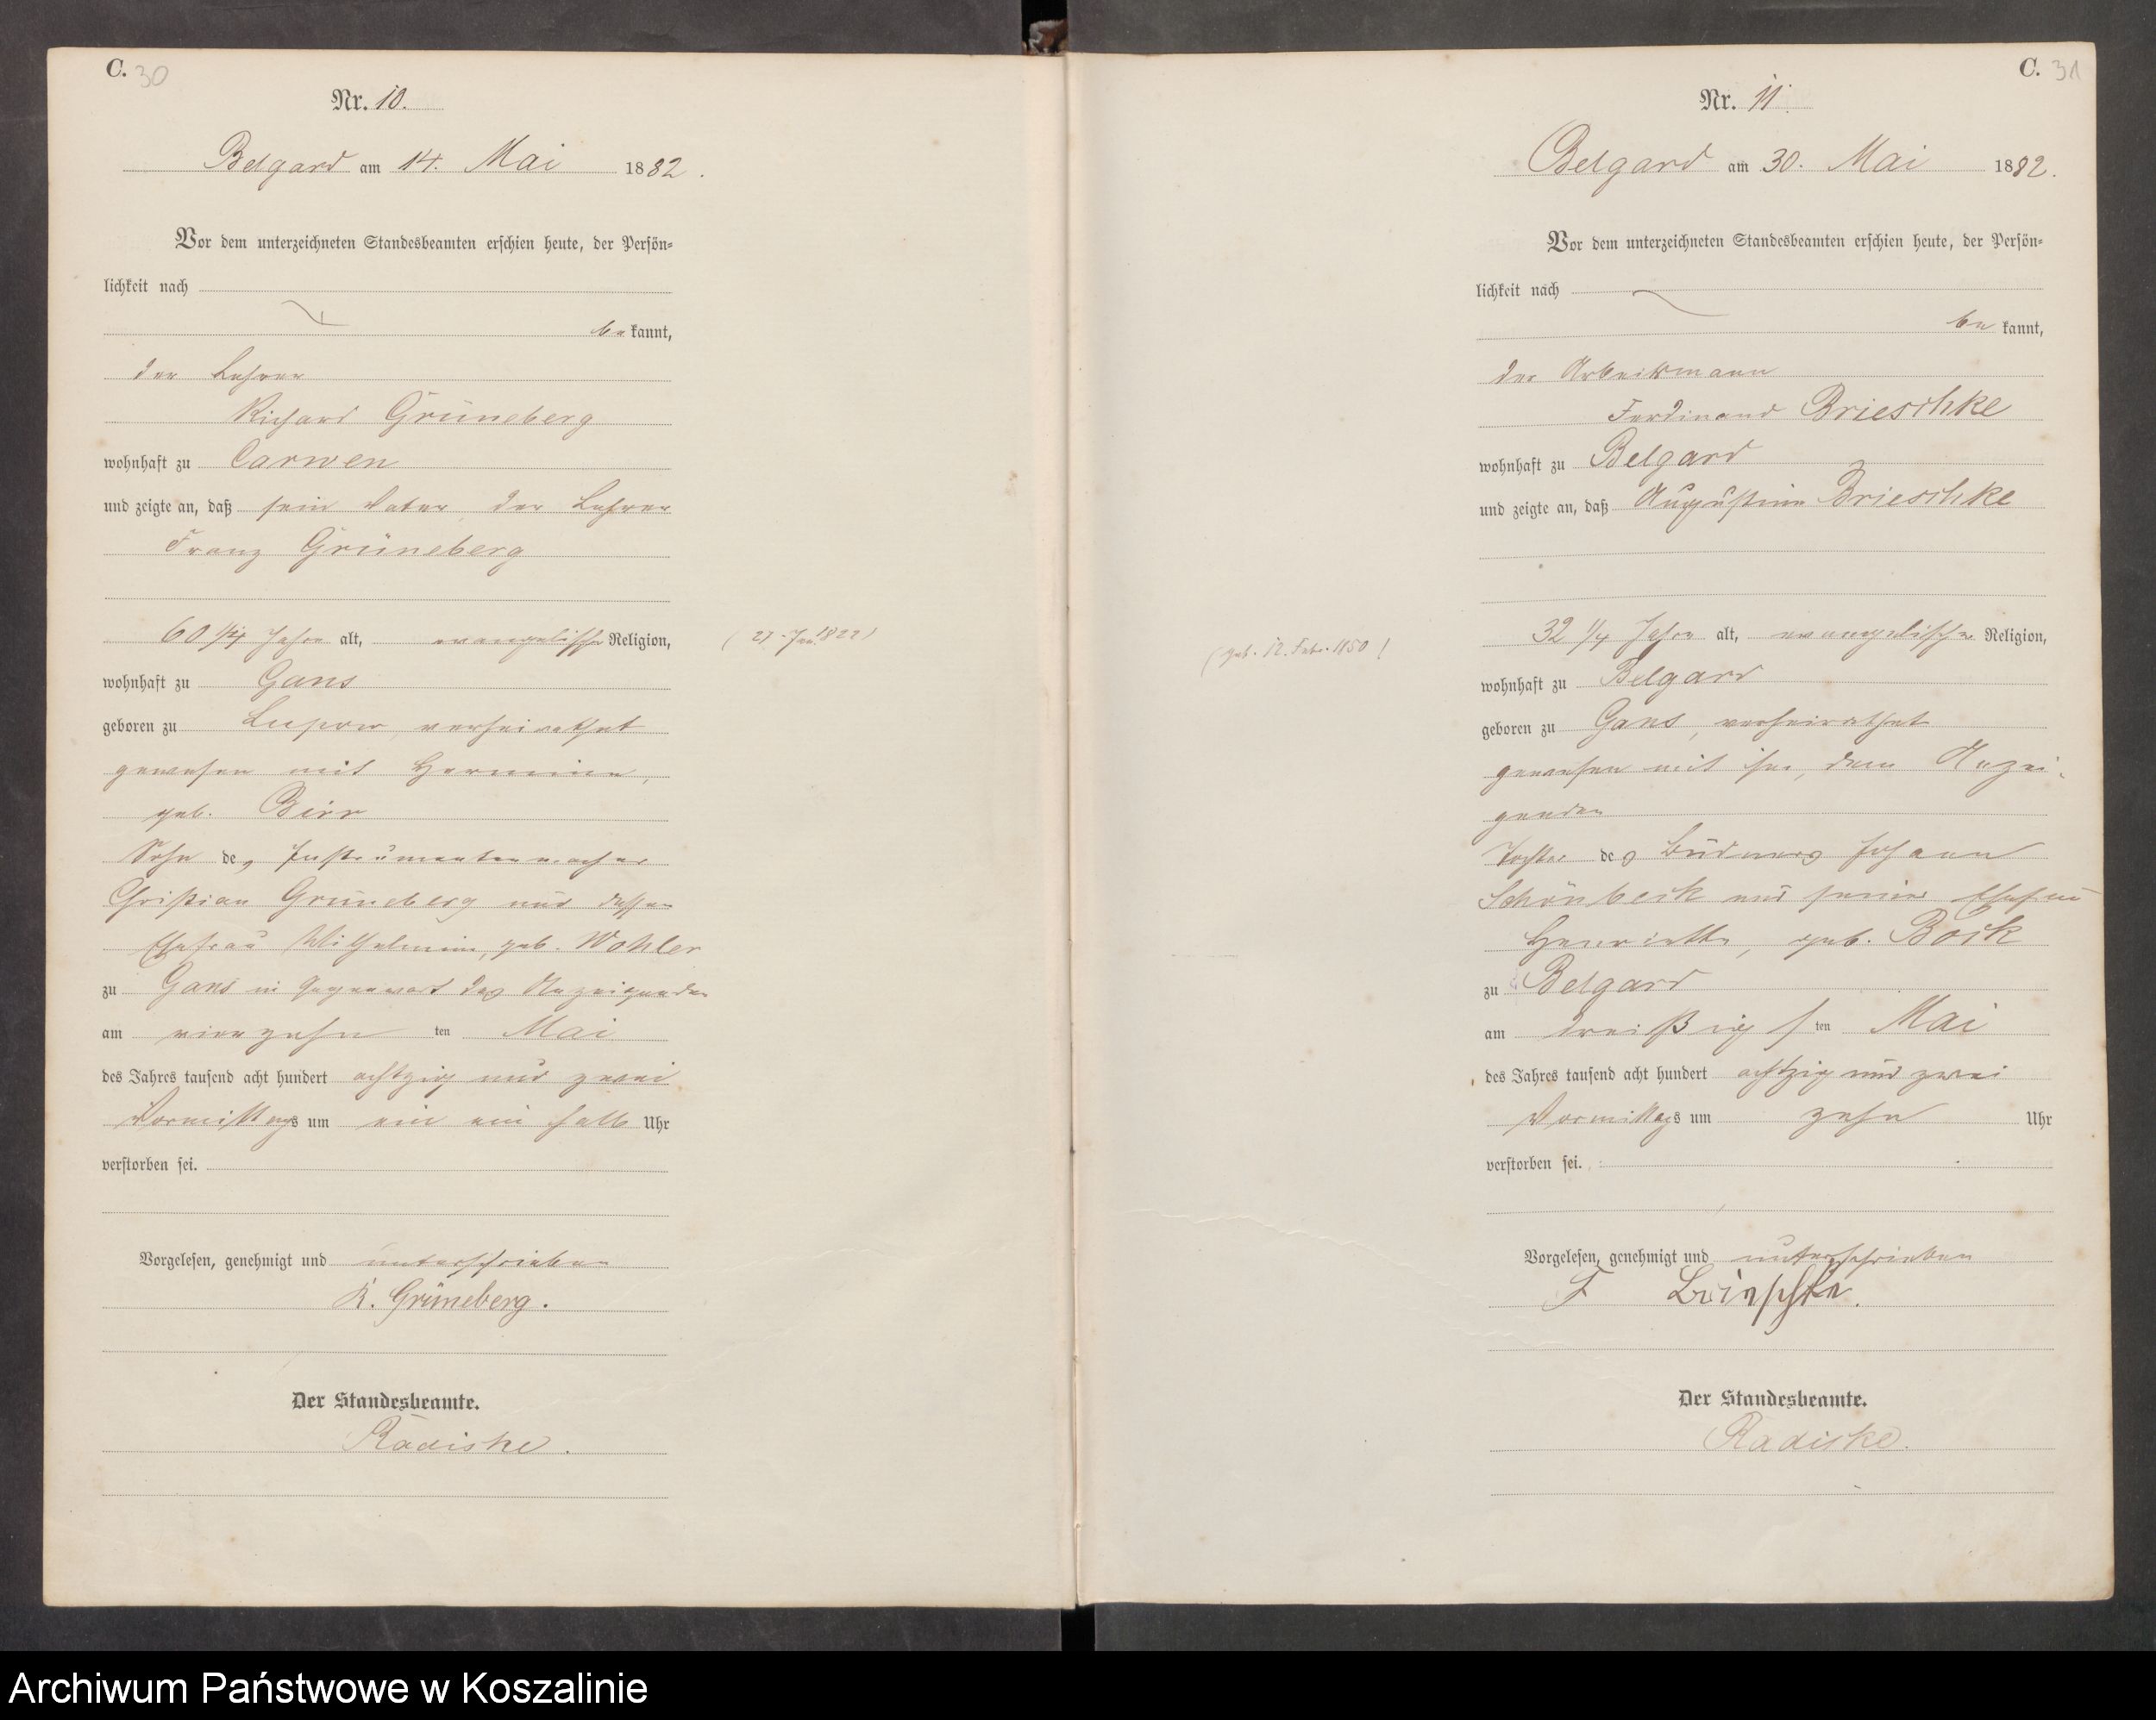 C. 30
Nr. 10.
Belgard am 14. Mai 1882.
Vor dem unterzeichneten Standesbeamten erschien heute, der Persön-
lichkeit nach
bekannt,
der Lehrer
Richard Grüneberg
wohnhaft zu Carwen
und zeigte an, daß sein Vater, der Lehrer
Franz Grüneberg
60 1/4 Jahre alt, evangelischer Religion,
(27. Jan. 1822)
wohnhaft zu Gans
geboren zu Lupow, verheirathet
gewesen mit Hermine,
geb. Birr
Sohn des Instrumentenmacher
Christian Grüneberg und dessen
Ehefrau Wilhelmine, geb. Wohler
zu Gans in Gegenwart des Anzeigenden
am vierzehn ten Mai
des Jahres tausend acht hundert achtzig und zwei
Vormittags um ein ein halb Uhr
verstorben sei.
Vorgelesen, genehmigt und unterschrieben
R. Grüneberg.
Der Standesbeamte.
Radiske.
C. 31
Nr. 11.
Belgard am 30. Mai 1882.
Vor dem unterzeichneten Standesbeamten erschien heute, der Persön-
lichkeit nach
bekannt,
der Arbeitsmann
Ferdinand Brieschke
wohnhaft zu Belgard
und zeigte an, daß Augustine Brieschke
32 1/4 Jahre alt, evangelischer Religion,
(geb. 12. Febr. 1850)
wohnhaft zu Belgard
geboren zu Gans, verheirathet
gewesen mit ihm, dem Anzei-
genden
Tochter des Büdners Johann
Schönbeck und seiner Ehefrau
Henriette, geb. Bock
zu Belgard
am dreißigs ten Mai
des Jahres tausend acht hundert achtzig und zwei
Vormittags um zehn Uhr
verstorben sei.
Vorgelesen, genehmigt und unterschrieben
F Brieschke.
Der Standesbeamte.
Radiske.
Archiwum Państwowe w Koszalinie